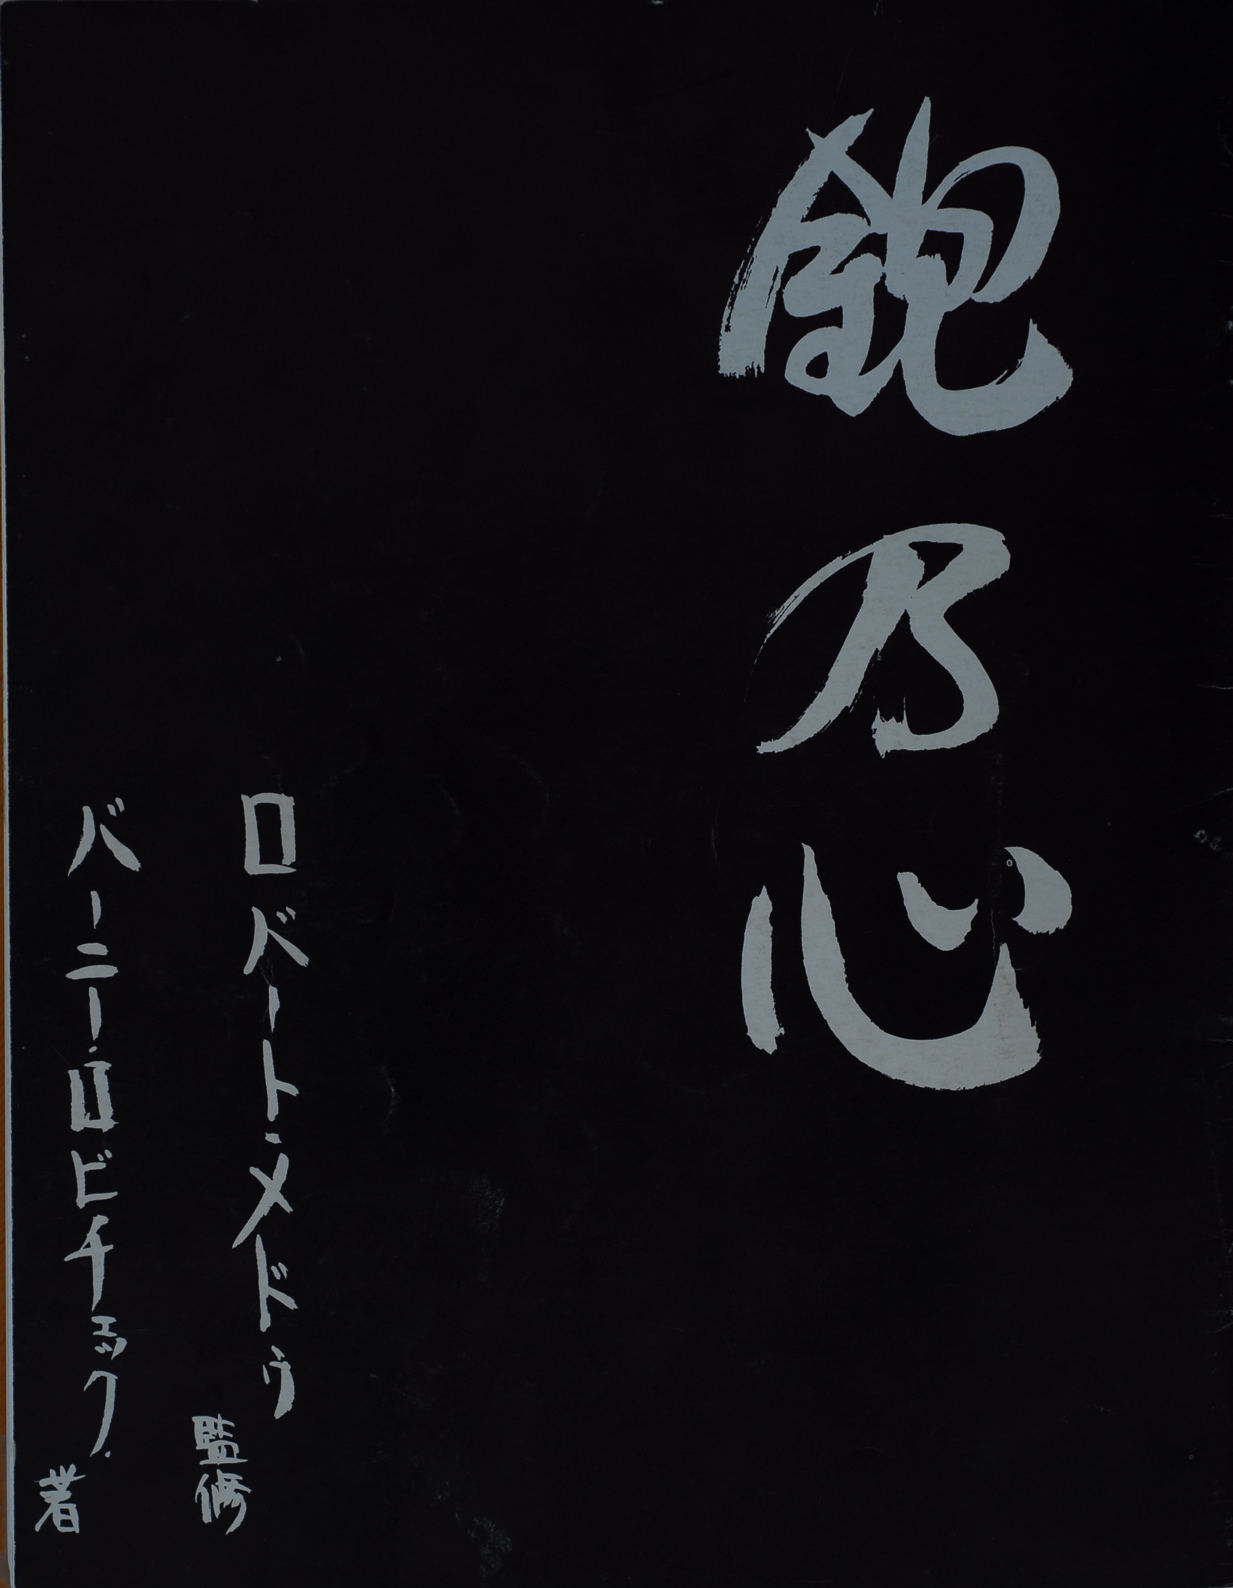 鉋乃心
ロバート・メドウ 監修
バーニー・ロビチェック 著